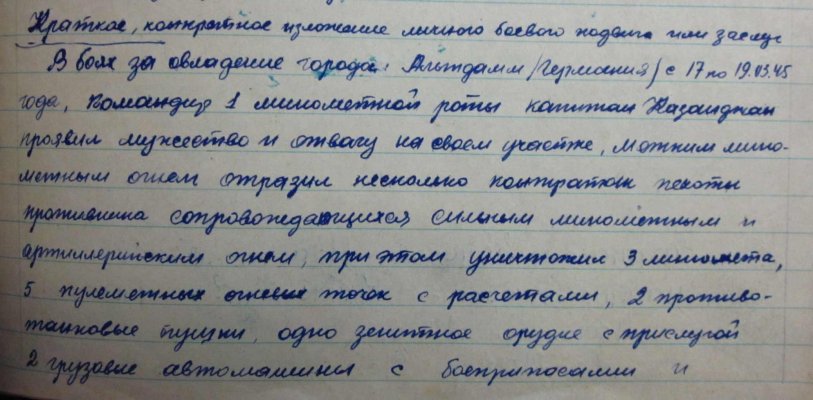 Краткое, конкретное изложение личного боевого подвига или заслуг
В боях за овладение города Альтдамм (Германия) с 17 по 19.03.45
года, командир 1 минометной роты капитан Казанджан
проявил мужество и отвагу на своем участке, можным мино-
метным огнем отразил несколько контратак пехоты
противника сопровождающихся сильным минометным и
артиллерийским огнем, при этом уничтожил 3 миномета,
5 пулеметных огневых точек с расчетами, 2 противо-
танковые пушки, одно зенитное орудие с прислугой
2 грузовые автомашины с боеприпасами и